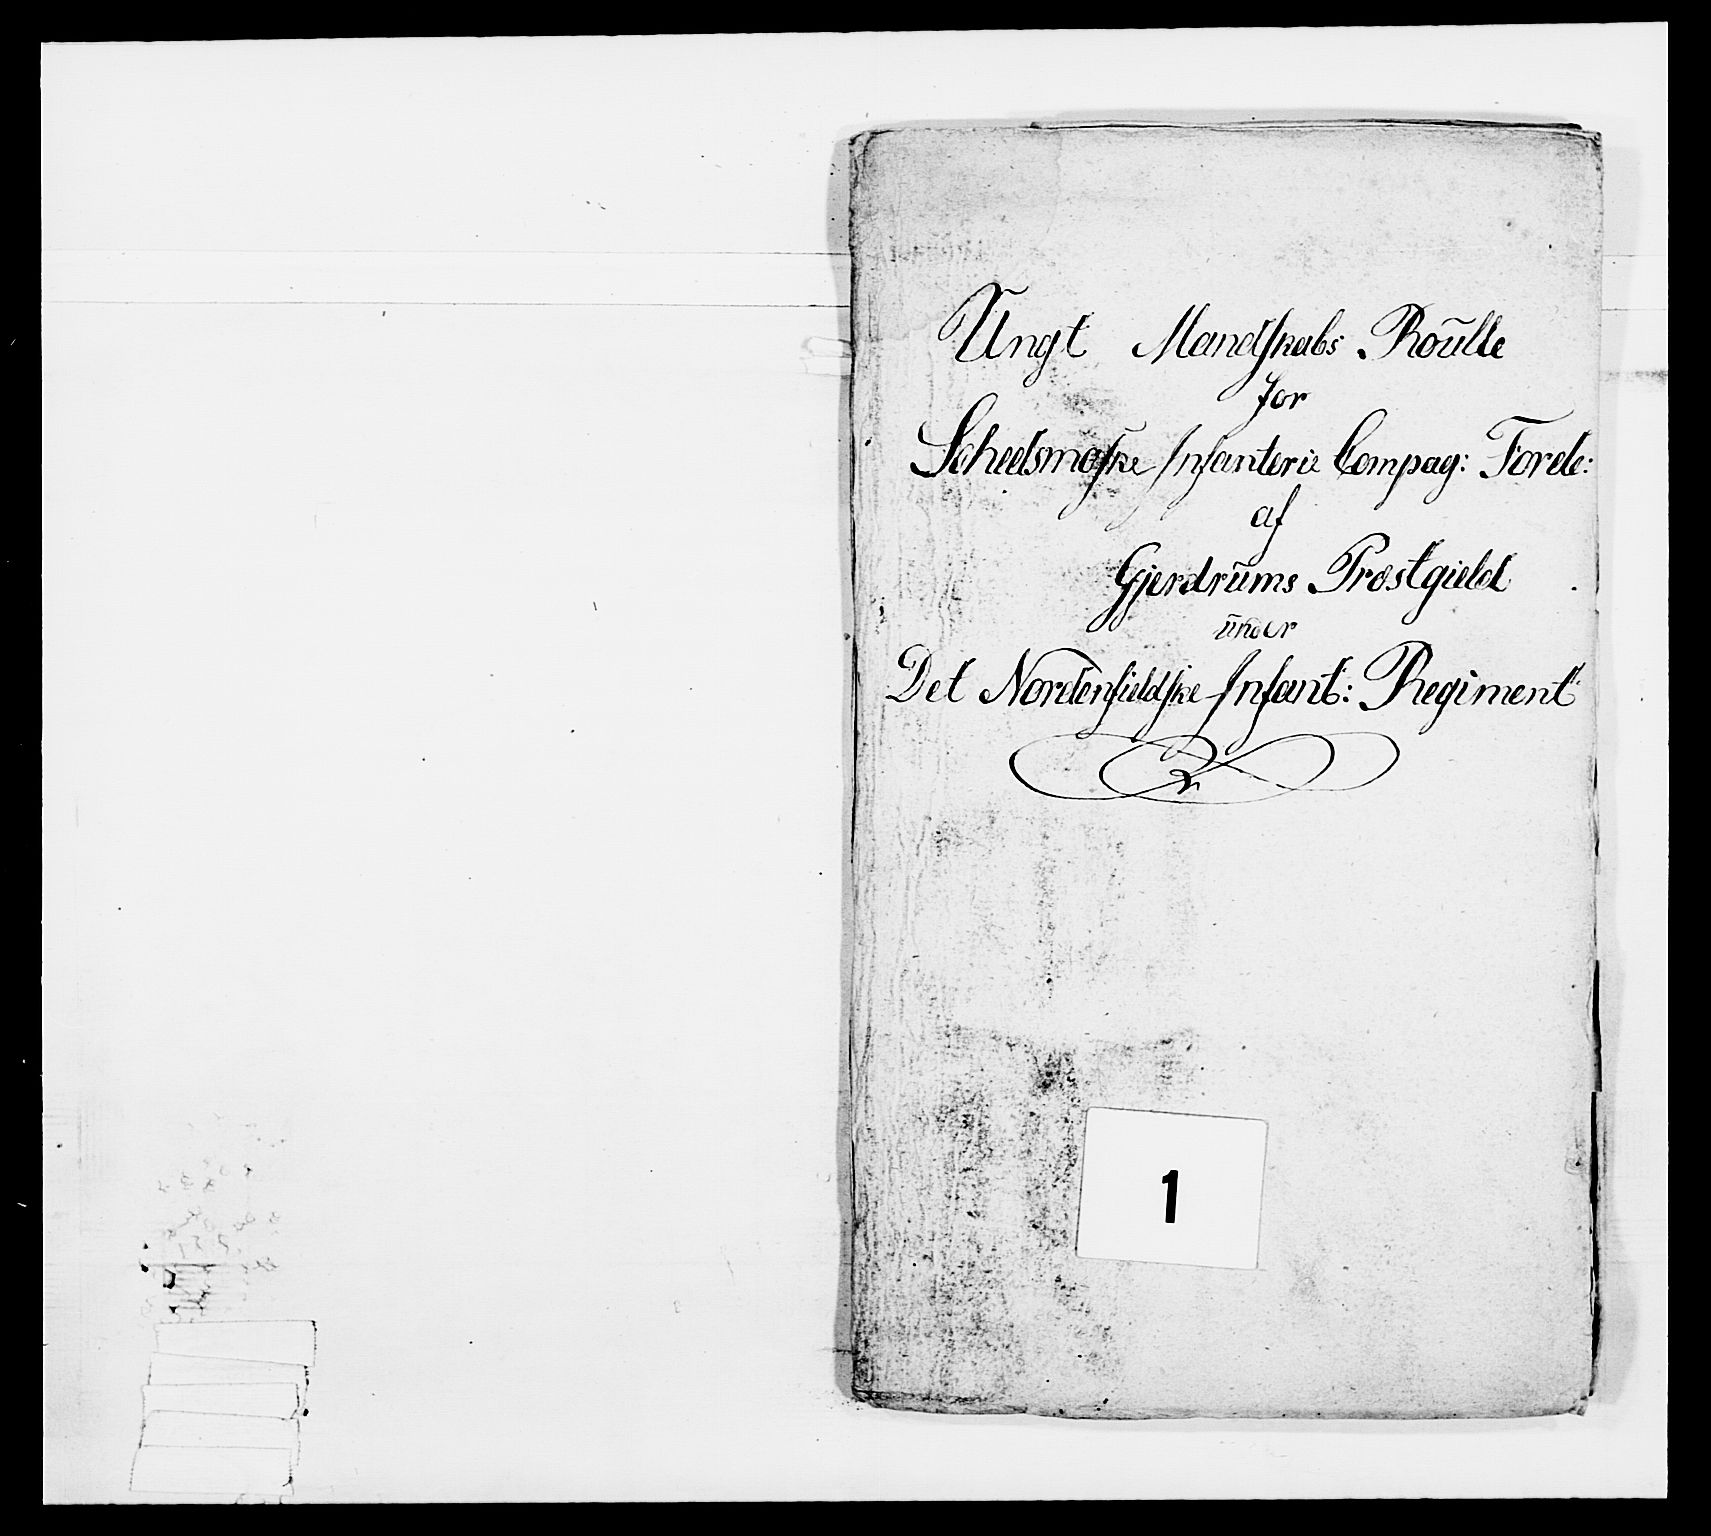 Ungt Mandskabs Roulle
for
Scheedsmoske Infanterie Compag: Forde:
af
Gjerdrums Præstgield
under
Det Nordenfieldske Infant: Regiment
1